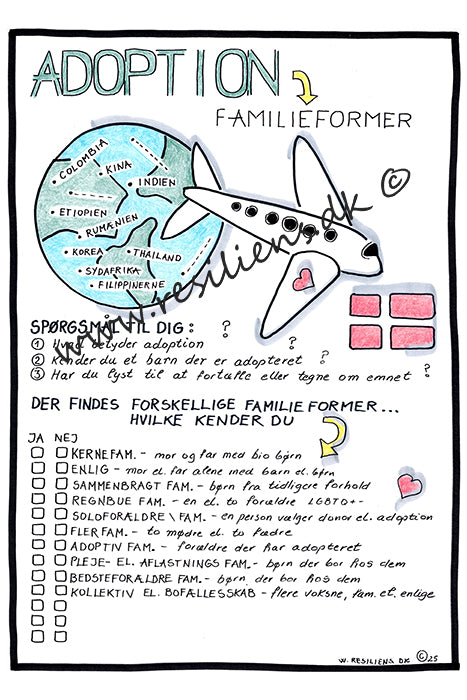 ADOPTION
FAMILIEFORMER
COLOMBIA
KINA
INDIEN
ETIOPIEN
RUMÆNIEN
KOREA
THAILAND
SYDAFRIKA
FILIPPINERNE
www.resiliens.dk ©
SPØRGSMÅL TIL DIG: ?
① Hvad betyder adoption ?
② Kender du et barn der er adopteret ?
③ Har du lyst til at fortælle eller tegne om emnet ?
DER FINDES FORSKELLIGE FAMILIEFORMER...
HVILKE KENDER DU
JA NEJ
KERNEFAM. - mor og far med bio børn
ENLIG - mor el. far alene med barn el. børn
SAMMENBRAGT FAM. - børn fra tidligere forhold
REGNBUE FAM. - en el. to forældre LGBTQ+-
SOLOFORÆLDRE \ FAM. - en person vælger donor el. adoption
FLERFAM. - to mødre el. to fædre
ADOPTIV FAM. - forældre der har adopteret
PLEJE- EL. AFLASTNINGS FAM. - børn der bor hos dem
BEDSTEFORÆLDRE FAM. - børn der bor hos dem
KOLLEKTIV EL. BOFÆLLESSKAB - flere voksne, fam. el. enlige
W. RESILIENS DK © 25